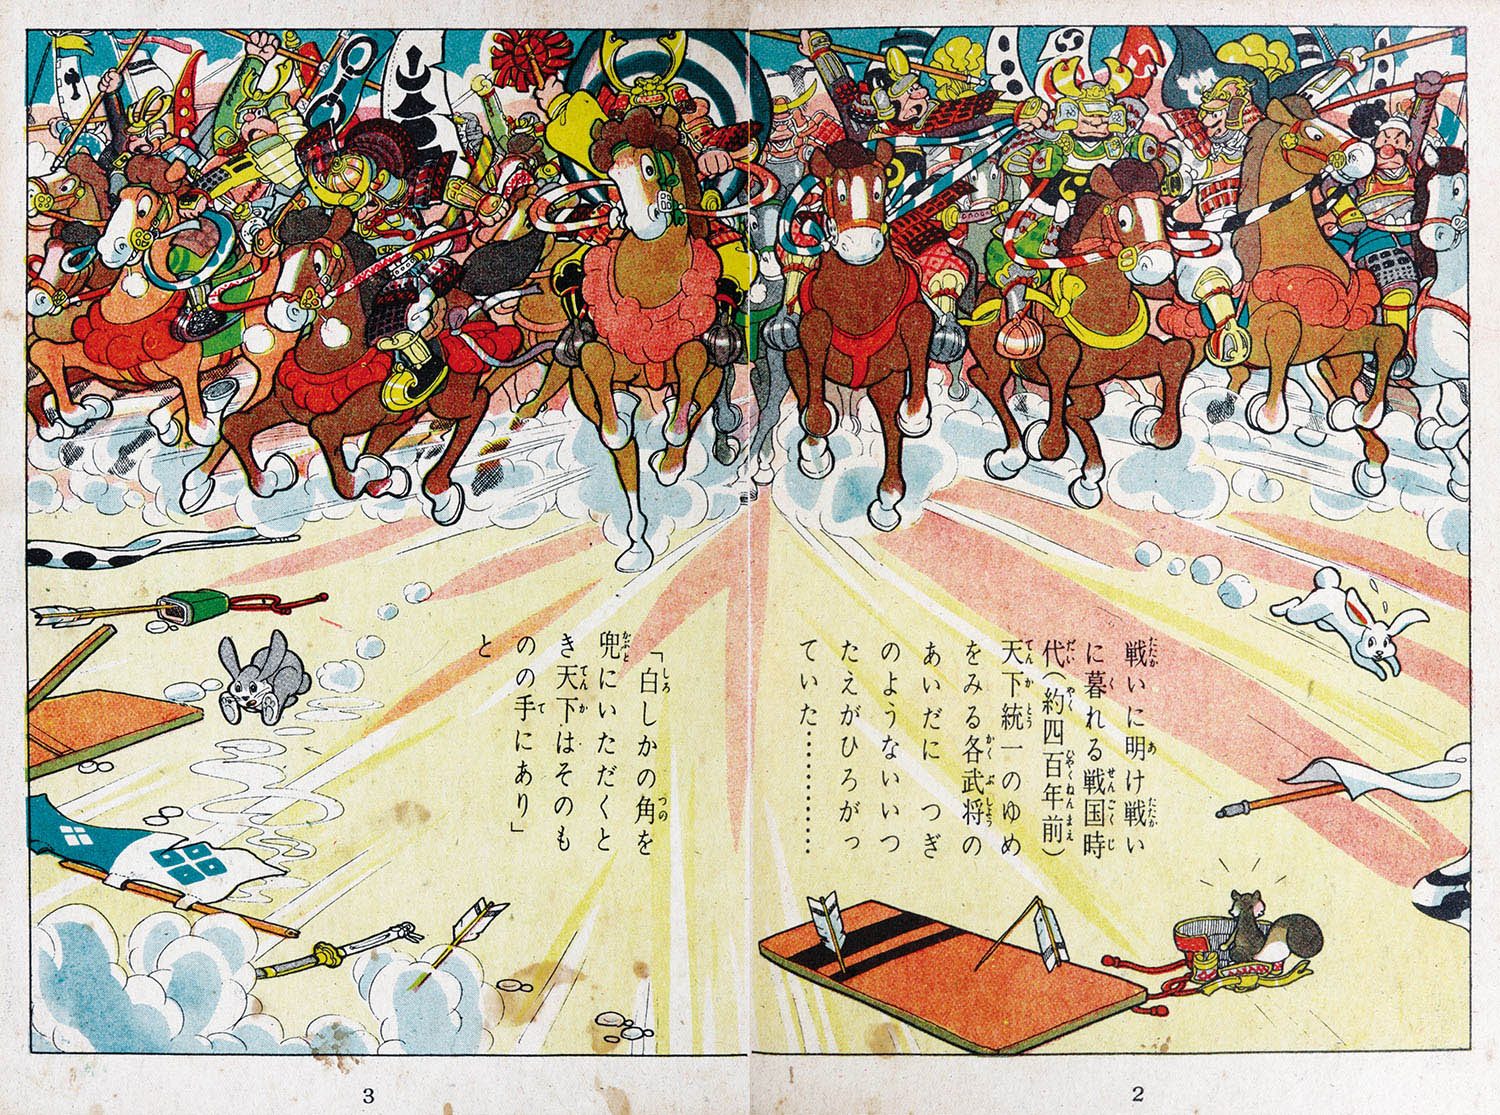 戦いに明け戦い
に暮れる戦国時
代(約四百年前)
天下統一のゆめ
をみる各武将の
あいだに　つぎ
のようないいつ
たえがひろがっ
ていた………
「白しかの角を
兜にいただくと
き天下はそのも
のの手にあり」
と
2
3